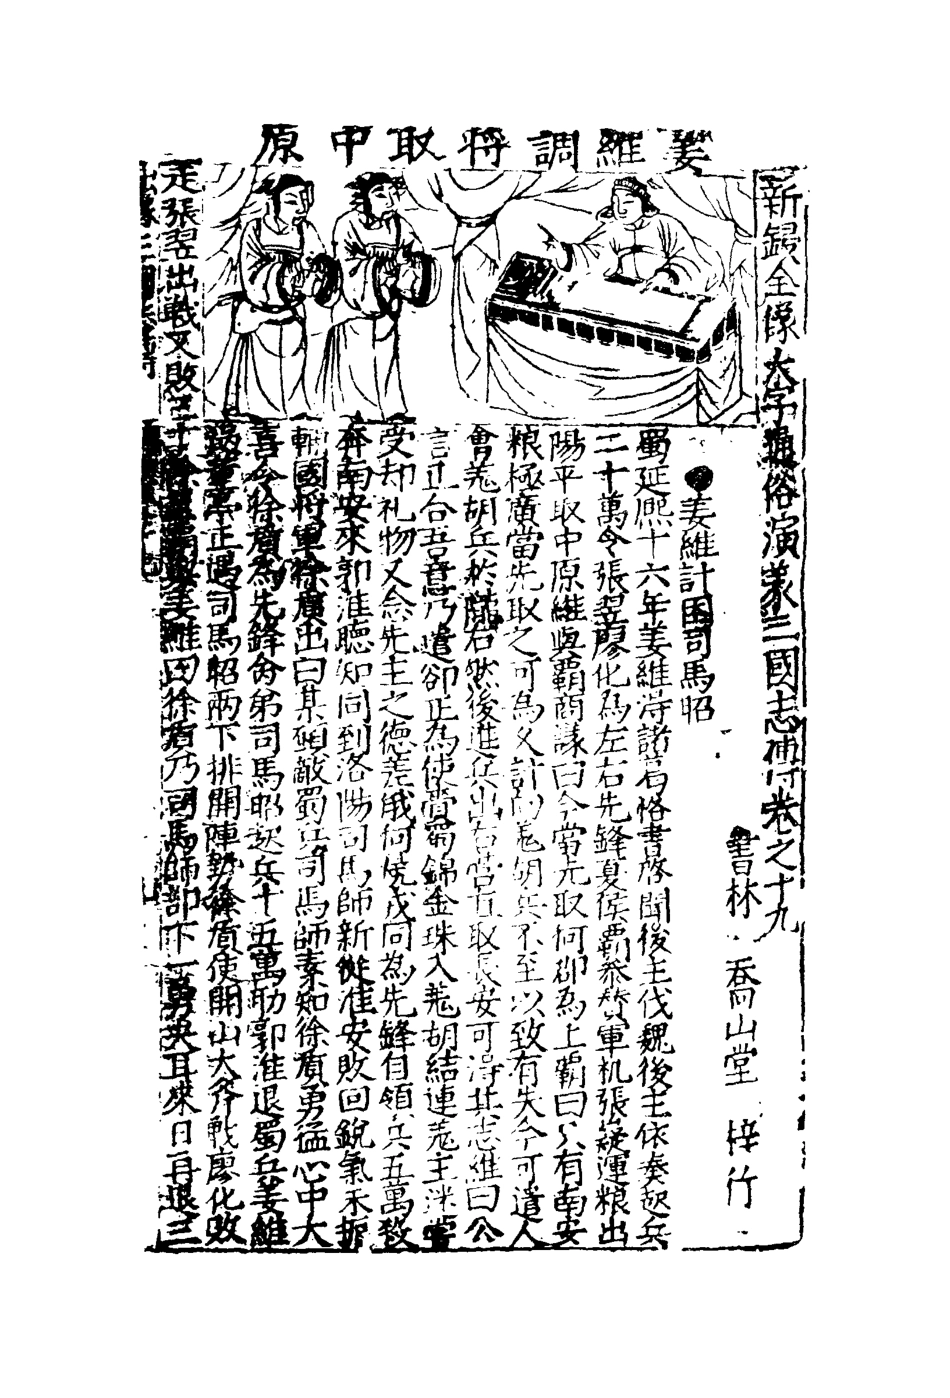 姜維調將取中原
新鋟全像大字通俗演義三國志傳卷之十九
書林 喬山堂 梓行
●姜維計困司馬昭
蜀延熈十六年姜維得諸葛恪書啓聞後主伐魏後主依奏起兵
二十萬令張翌廖化為左右先鋒夏侯霸叅賛軍机張嶷運粮出
陽平取中原維與霸商議曰今當先取何郡為上霸曰只有南安
粮極廣當先取之可為久計向羗胡兵不至以致有失今可遣人
會羗胡兵於隴右然後進兵出石營直取長安可得其志維曰公
言正合吾意乃遣郤正為使賫蜀錦金珠入羗胡結連羗主迷當
受却礼物又念先主之德差俄何燒戈同為先鋒自領兵五萬殺
奔南安來郭淮聴知同到洛陽司馬師新從淮安敗回銳氣未折
輔國將軍徐質出曰某頋敵蜀兵司馬師素知徐質勇猛心中大
喜令徐質為先鋒令弟司馬昭起兵十五萬助郭淮退蜀兵姜維
正遇司馬昭兩下排開陣勢徐質使開山大斧戰廖化敗
走張翌出戰又敗三十 姜維曰徐質乃司馬師部下一勇夫耳來日再退三